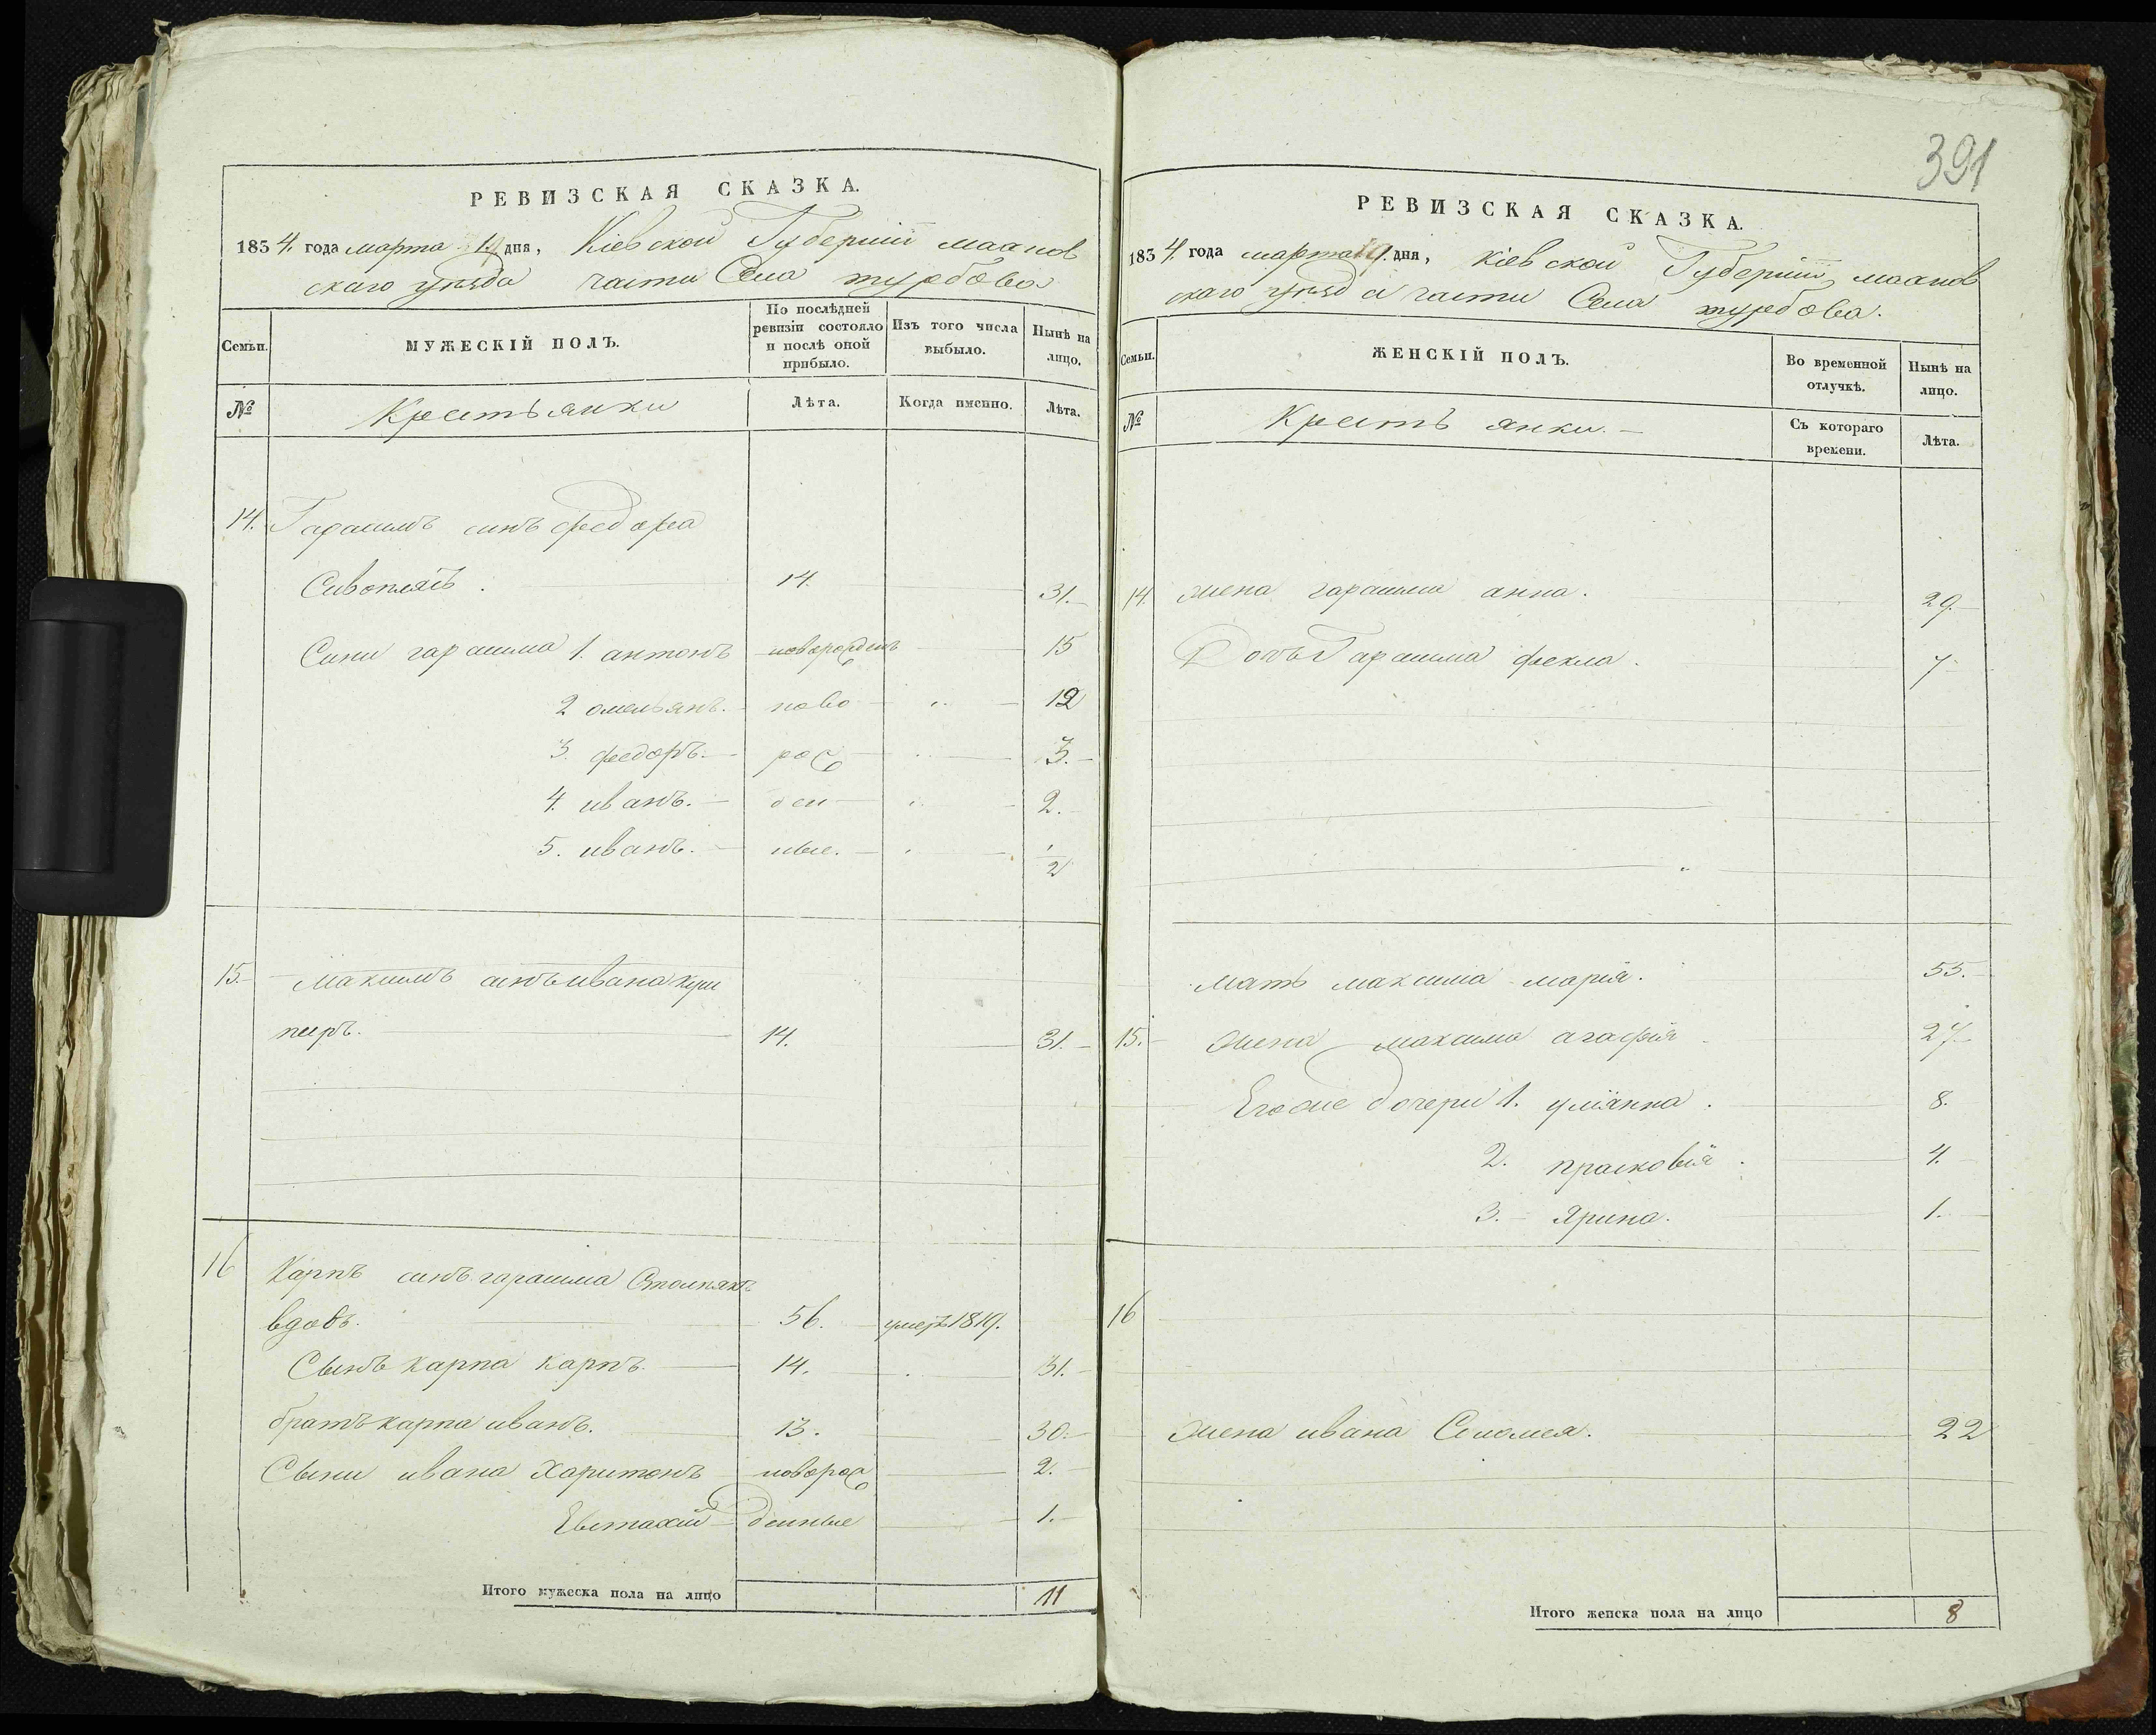 391
РЕВИЗСКАЯ СКАЗКА.
1834. года марта 19 дня, Кіевской Губерніи махнов
скаго уѣзда части Села турбова
Семьи.
МУЖЕСКІЙ ПОЛЪ.
По послѣдней ревизіи состояло и послѣ оной прибыло.
Изъ того числа выбыло.
Нынѣ на лицо.
№
Крестьянки
Лѣта.
Когда именно.
Лѣта.
14. Гарасимъ синъ федора
Сивоплясъ. 14. 31.
Сини гарасима 1. антонъ новорожденъ 15
2 омельянъ. ново 12
3. федоръ. рож 3.
4. иванъ. ден 2.
5. иванъ. ные. 1/2
15. Максимъ синъ ивана куш
ниръ. 14. 31.
16 Карпъ синъ гарасима
вдовъ. 56. умеръ 1819.
Сынъ карпа карпъ. 14. 31.
братъ карпа иванъ. 13. 30.
Сыни ивана Харитонъ оворож 2.
Евстахий денные 1.
Итого мужеска пола на лицо 11
РЕВИЗСКАЯ СКАЗКА.
1834. года марта 19. дня, Кіевской Губерніи махнов
скаго уѣзда части Села турбова.
Семьи.
ЖЕНСКІЙ ПОЛЪ.
Во временной отлучкѣ.
Нынѣ на лицо.
№
Крестьянки.
Съ котораго времени.
Лѣта.
14. жена гарасима анна. 29.
Дочь Гарасима фекла. 7
Мать максима марія. 55.
15. Жена максима агафія 27.
Его же дочери 1. уліянна. 8.
2. прасковія. 4.
3. Ярина. 1.
16
Жена ивана Соломея. 22
Итого женска пола на лицо 8